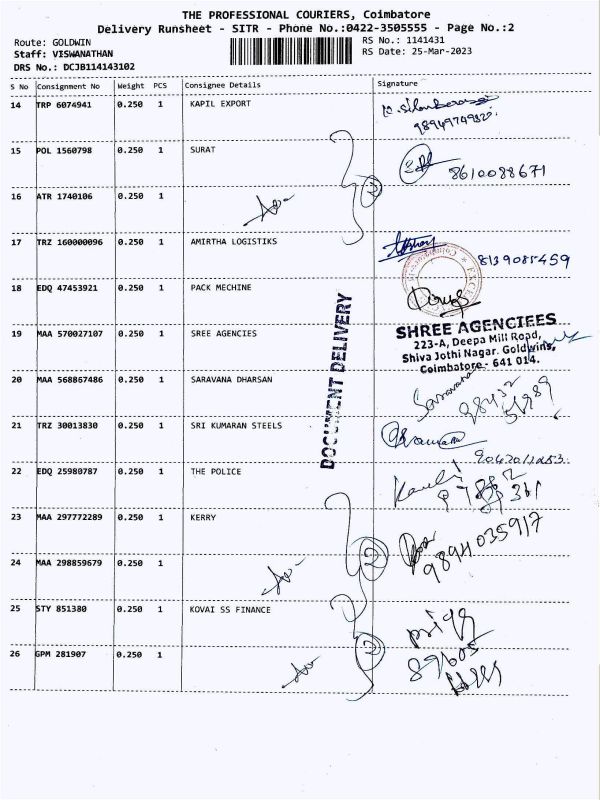 THE PROFESSIONAL COURIERS, Coimbatore
Delivery Runsheet - SITR - Phone No.:0422-3505555 - Page No.:2
Route: GOLDWIN RS No.: 1141431
Staff: VISWANATHAN RS Date: 25-Mar-2023
DRS No.: DCJB114143102
S No Consignment No Weight PCS Consignee Details Signature
14 TRP 6074941 0.250 1 KAPIL EXPORT
15 POL 1560798 0.250 1 SURAT
8610088671
16 ATR 1740106 0.250 1
17 TRZ 160000096 0.250 1 AMIRTHA LOGISTIKS
8139085459
18 EDQ 47453921 0.250 1 PACK MECHINE
DOCUMENT DELIVERY
19 MAA 570027107 0.250 1 SREE AGENCIES
SHREE AGENCIEES
223-A, Deepa Mill Road,
Shiva Jothi Nagar. Goldwins,
Coimbatore - 641 014.
20 MAA 568867486 0.250 1 SARAVANA DHARSAN
21 TRZ 30013830 0.250 1 SRI KUMARAN STEELS
22 EDQ 25980787 0.250 1 THE POLICE
23 MAA 297772289 0.250 1 KERRY
9894035917
24 MAA 298859679 0.250 1
25 STY 851380 0.250 1 KOVAI SS FINANCE
26 GPM 281907 0.250 1